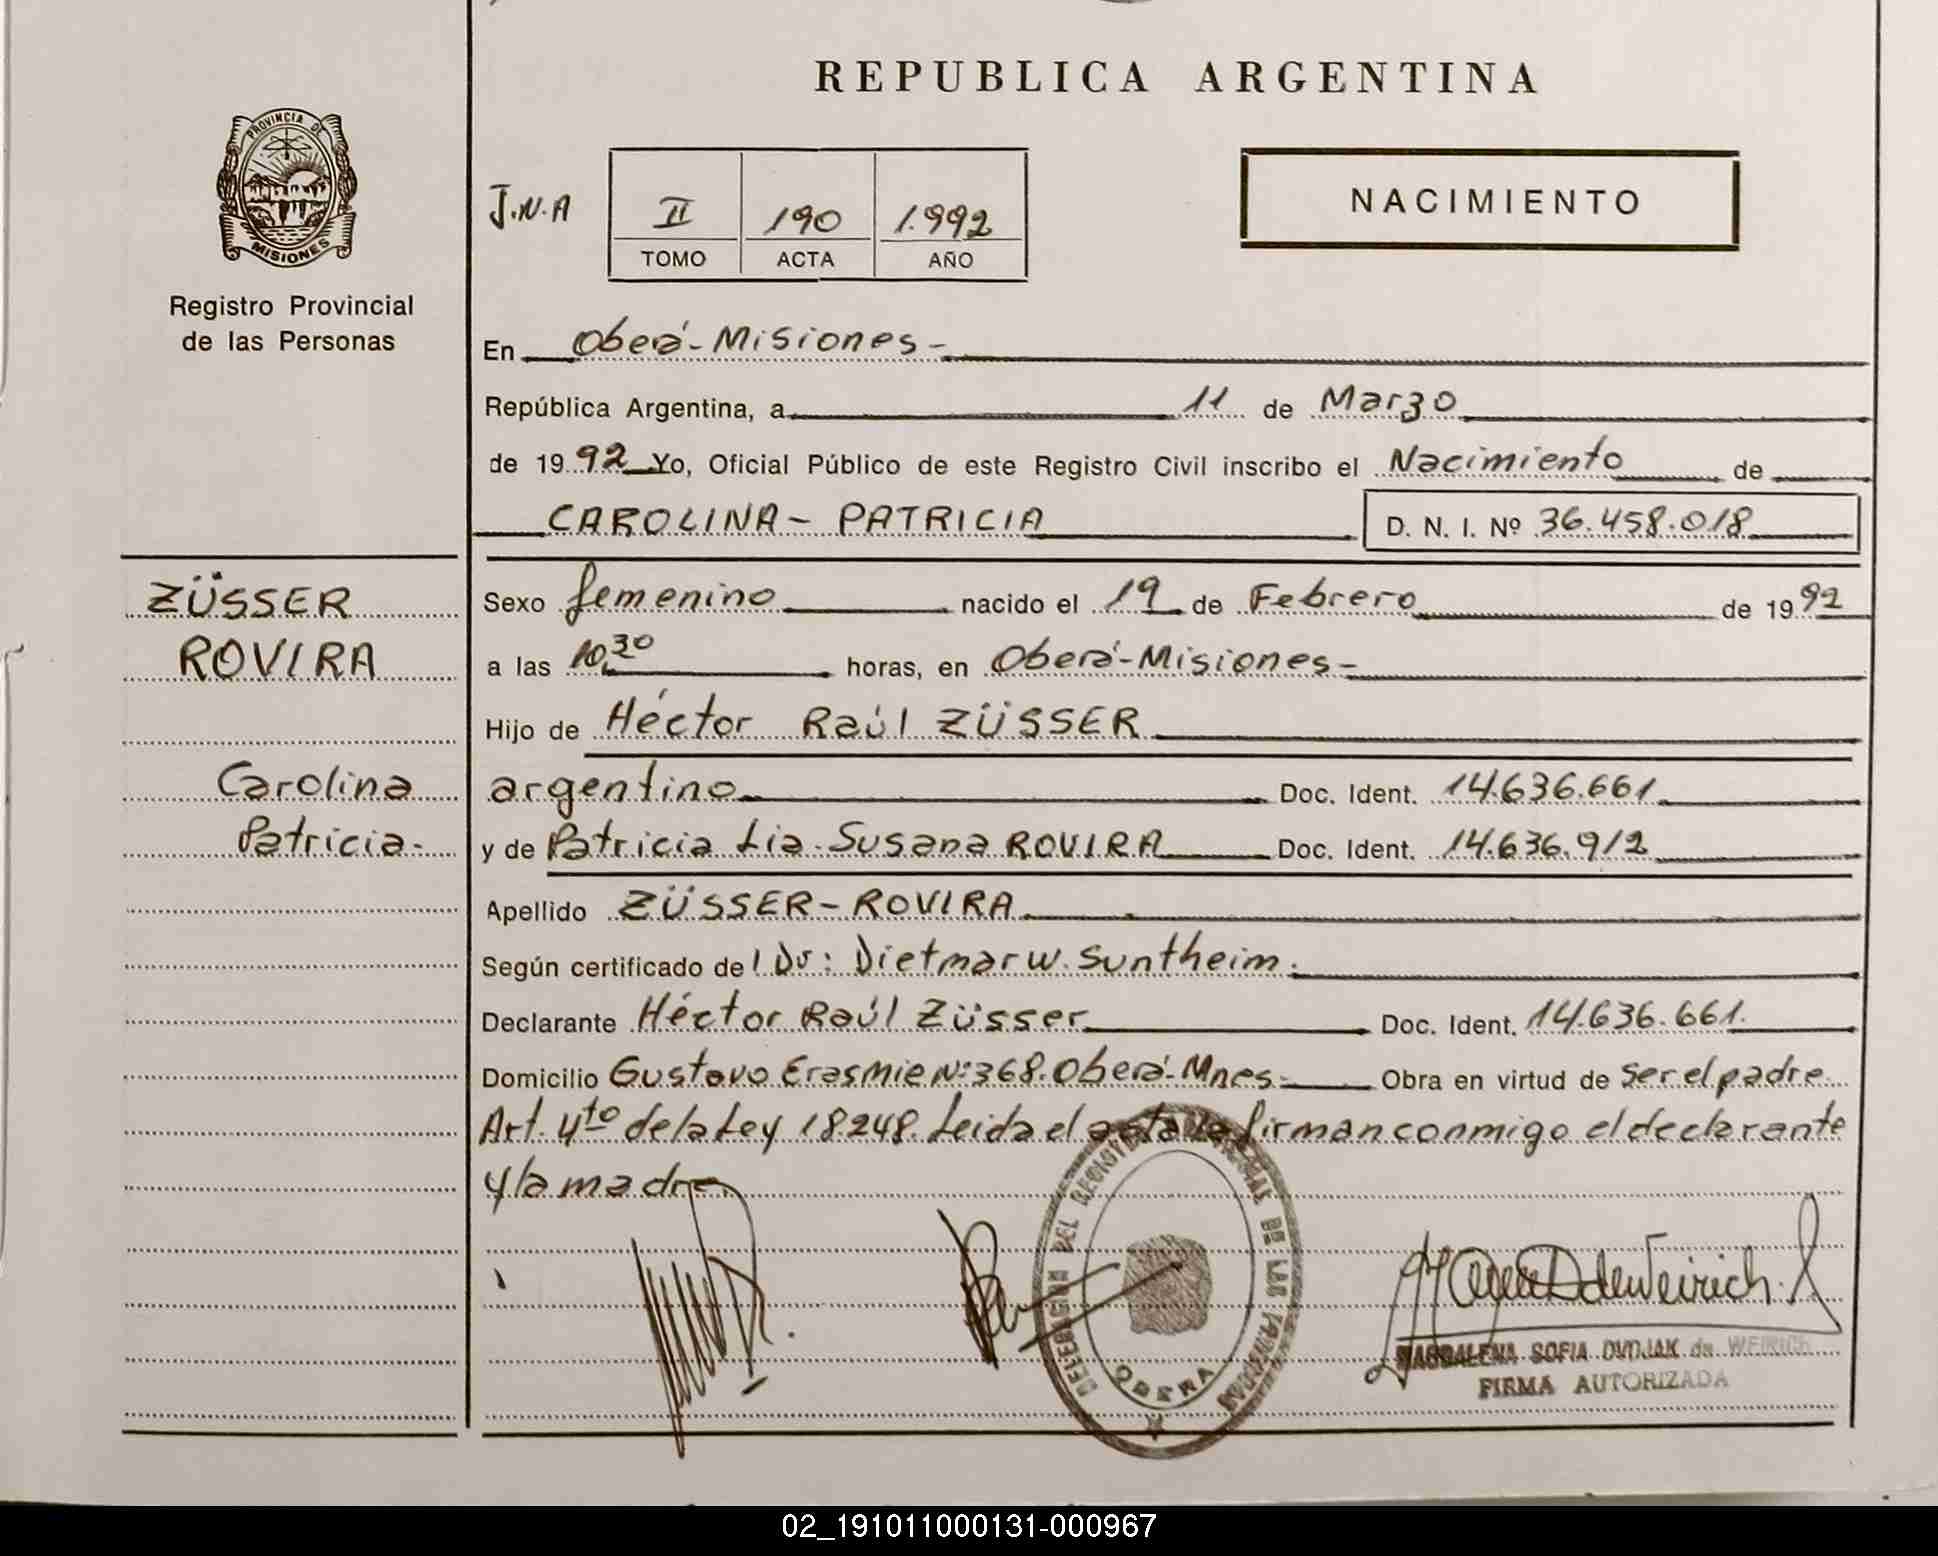 REPUBLICA ARGENTINA
PROVINCIA DE
MISIONES
Registro Provincial
de las Personas
J.N.A
II 190 1.992
TOMO ACTA AÑO
NACIMIENTO
En Oberá-Misiones-
República Argentina, a 11 de Marzo
de 1992 Yo, Oficial Público de este Registro Civil inscribo el Nacimiento de
CAROLINA- PATRICIA D. N. I. Nº 36.458.018
ZÜSSER
ROVIRA
Carolina
Patricia-
Sexo femenino nacido el 19 de Febrero de 1992
a las 10,30 horas, en Oberá-Misiones-
Hijo de Héctor Raúl ZÜSSER
argentino Doc. Ident. 14.636.661
y de Patricia Lia Susana ROVIRA Doc. Ident. 14.636.912
Apellido ZÜSSER-ROVIRA
Según certificado del Dr: Dietmar W. Suntheim.
Declarante Héctor Raúl Züsser Doc. Ident. 14.636.661.
Domicilio Gustavo Erasmie Nº 368. Oberá-Mnes- Obra en virtud de ser el padre
Art. 4to de la Ley 18248. Leida el acta la firman conmigo el declarante
y la madre
DELEGACION DEL REGISTRO PROVINCIAL DE LAS PERSONAS
OBERA
MAGDALENA SOFIA DUDJAK de WEIRICH
FIRMA AUTORIZADA
02_191011000131-000967